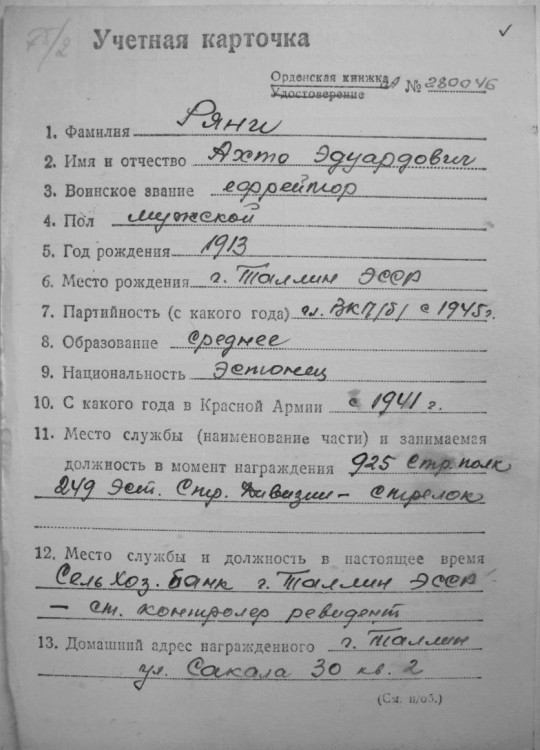 75/2
Учетная карточка
Орденская книжка
Удостоверение № 280046
1. Фамилия Рянги
2. Имя и отчество Ахто Эдуардович
3. Воинское звание ефрейтор
4. Пол мужской
5. Год рождения 1913
6. Место рождения г. Таллин ЭССР
7. Партийность (с какого года) чл. ВКП/б/ с 1945 г.
8. Образование среднее
9. Национальность Эстонец
10. С какого года в Красной Армии с 1941 г.
11. Место службы (наименование части) и занимаемая
должность в момент награждения 925 Стр. полк
249 Эст. Стр. Дивизии – стрелок
12. Место службы и должность в настоящее время
Сель Хоз. банк г. Таллин ЭССР
– ст. контролер ревидент
13. Домашний адрес награжденного г. Таллин
ул. Сакала 30 кв. 2
(См. н/об.)